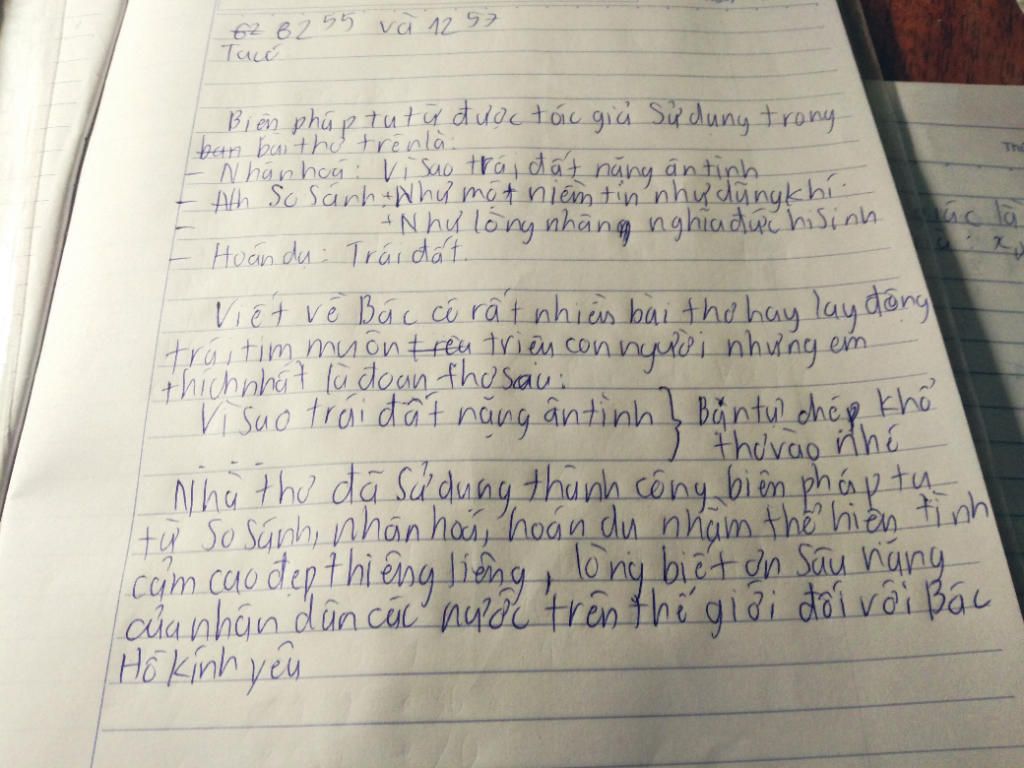 62 82⁵⁵ và 12⁵⁷
Ta có
Biện pháp tu từ được tác giả sử dụng trong
ban bài thơ trên là:
- Nhân hoá: Vì sao trái đất nặng ân tình
- Ah So Sánh: + Như một niềm tin như dũng khí.
- + Như lòng nhân nghĩa đức hi sinh
- Hoán dụ: Trái đất.
Viết về Bác có rất nhiều bài thơ hay lay động
trái tim muôn trêu triệu con người nhưng em
thích nhất là đoạn thơ sau:
Vì sao trái đất nặng ân tình } Bạn tự chép khổ
thơ vào nhé
. . .
Nhà thơ đã sử dụng thành công biện pháp tu
từ So Sánh, nhân hoá, hoán dụ nhằm thể hiện tình
cảm cao đẹp thiêng liêng, lòng biết ơn sâu nặng
của nhân dân các nước trên thế giới đối với Bác
Hồ kính yêu